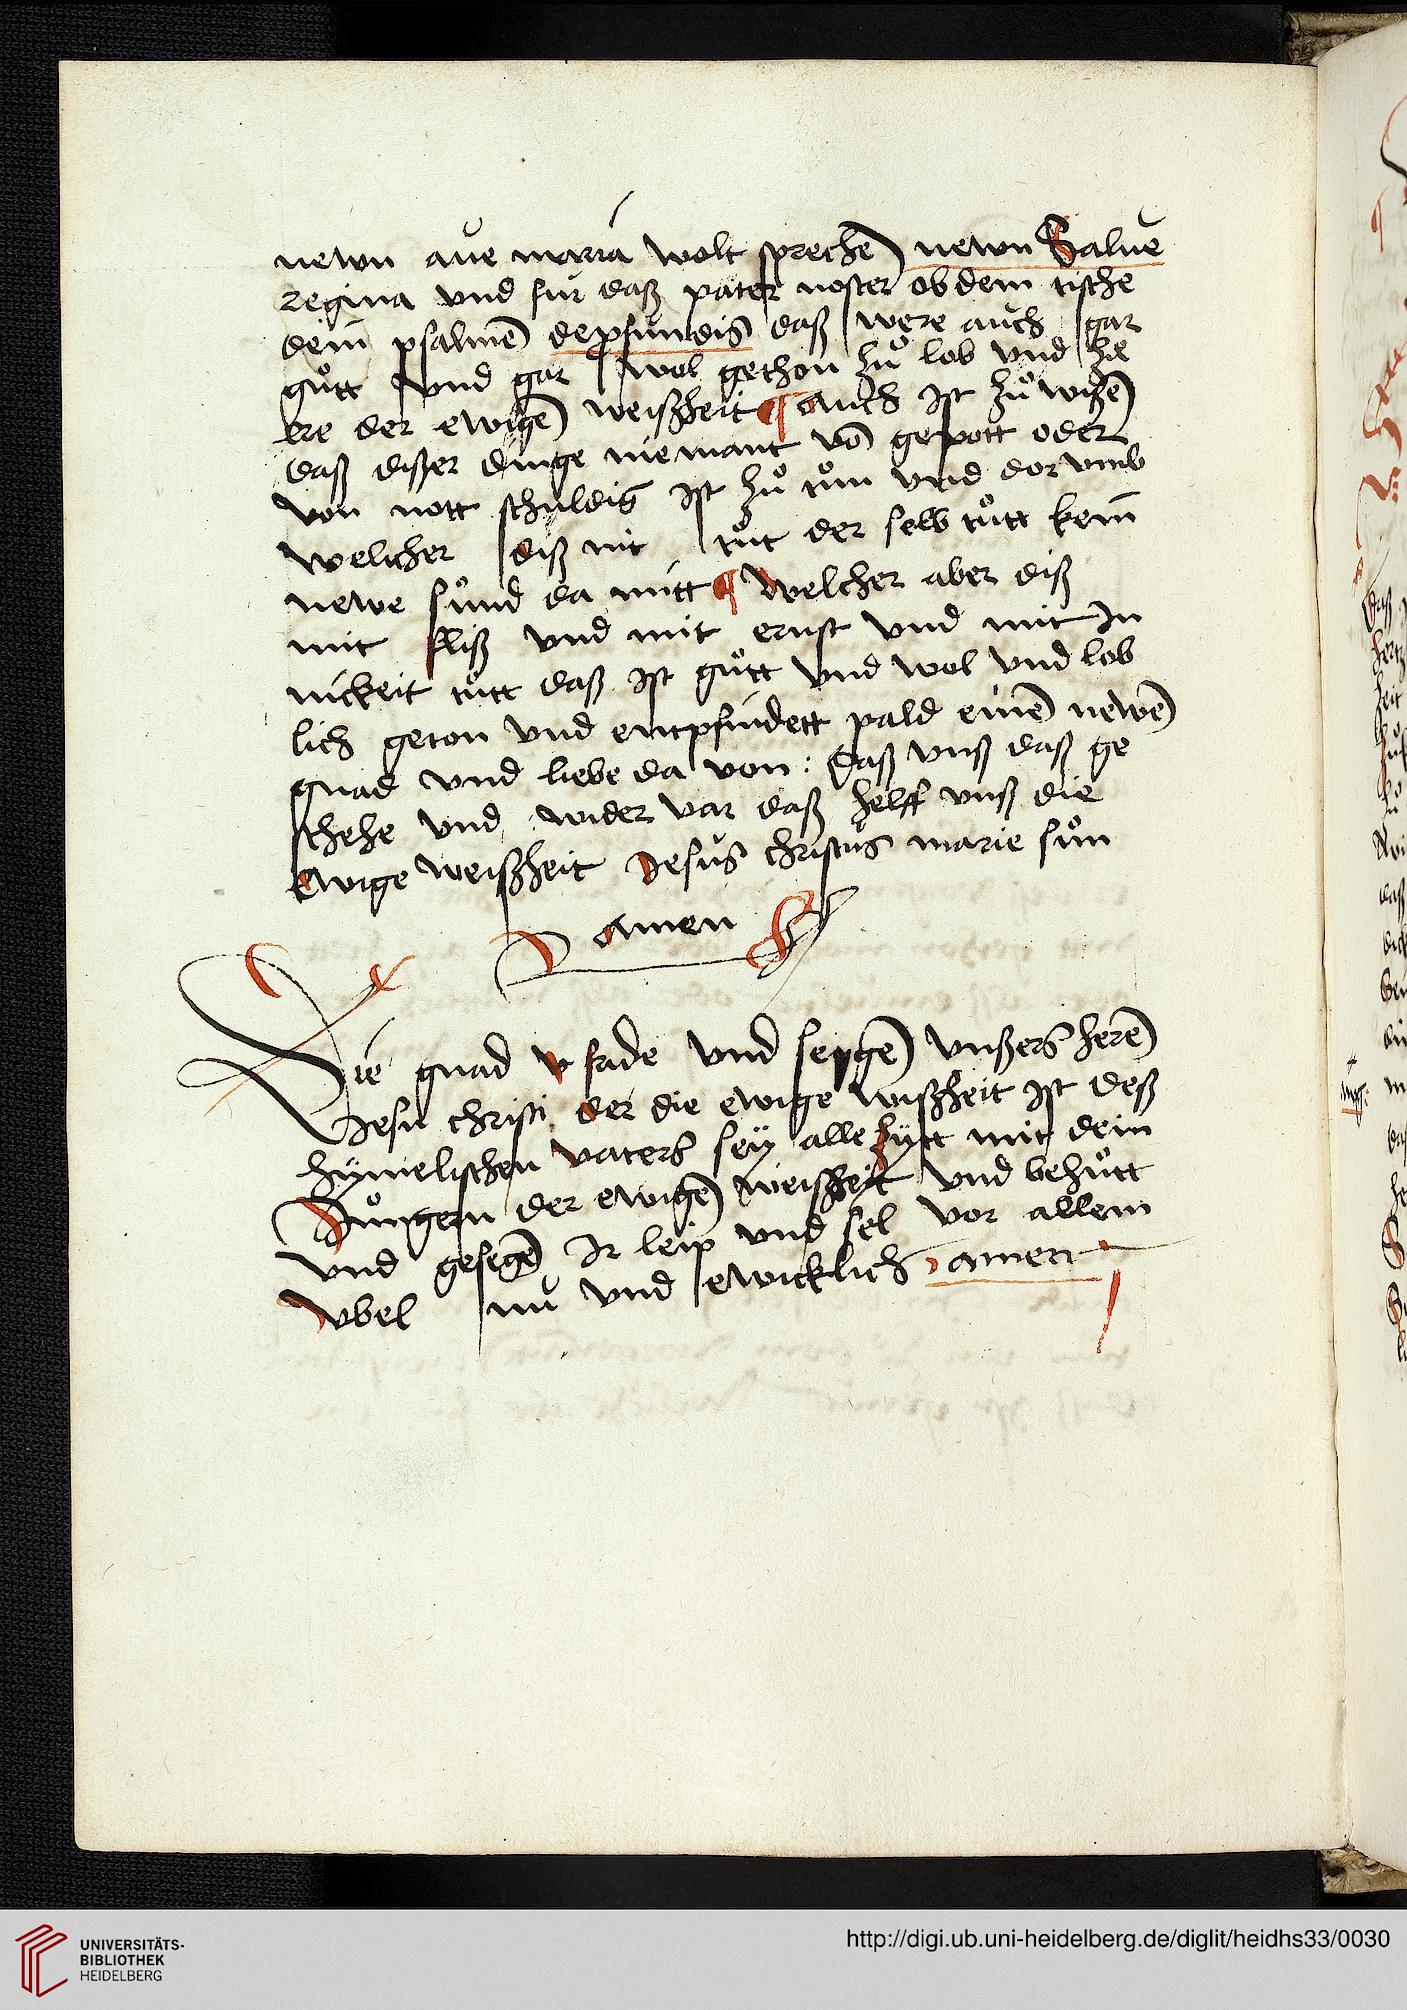 newn aue maria wolt sprechē newn Salue
regina vnd fur daß pater noster ob dem tische
dein psalmē deꝓfundis daß were auch gar
gůtt vnd gar wol gethon zů lob vnd zů
ere der ewigē weißheit ¶ auch ist zů wißē
daß dißer dinge niemant vō gepott oder
von nott schuldig ist zů tůn vnd dor vmb
welicher diß nit tůt der selb tůtt kein
newe sůnd da mitt ¶ welcher aber diß
mit fliß vnd mit ernst vnd mit In
nickeit tůtt daß ist gůtt vnd wol vnd lob
lich geton vnd entpfindett pald einē newē
gnad vnd liebe da von: daß vnß daß ge
schehe vnd wider var daß helff vnß die
ewige weißheit Jesus christus marie sůn
amen
Die gnad vnd seygē vnßers herē
Jesu christi der die ewige wißheit ist deß
hÿmelischen vaters seÿ alle zÿtt mit dein
Jůngern der ewigē weißheyt vnd behůtt
vnd gesegē Ir leip vnd sel vor allem
vbel nu vnd ewicklich amen
UNIVERSITÄTS-
BIBLIOTHEK
HEIDELBERG
http://digi.ub.uni-heidelberg.de/diglit/heidhs33/0030